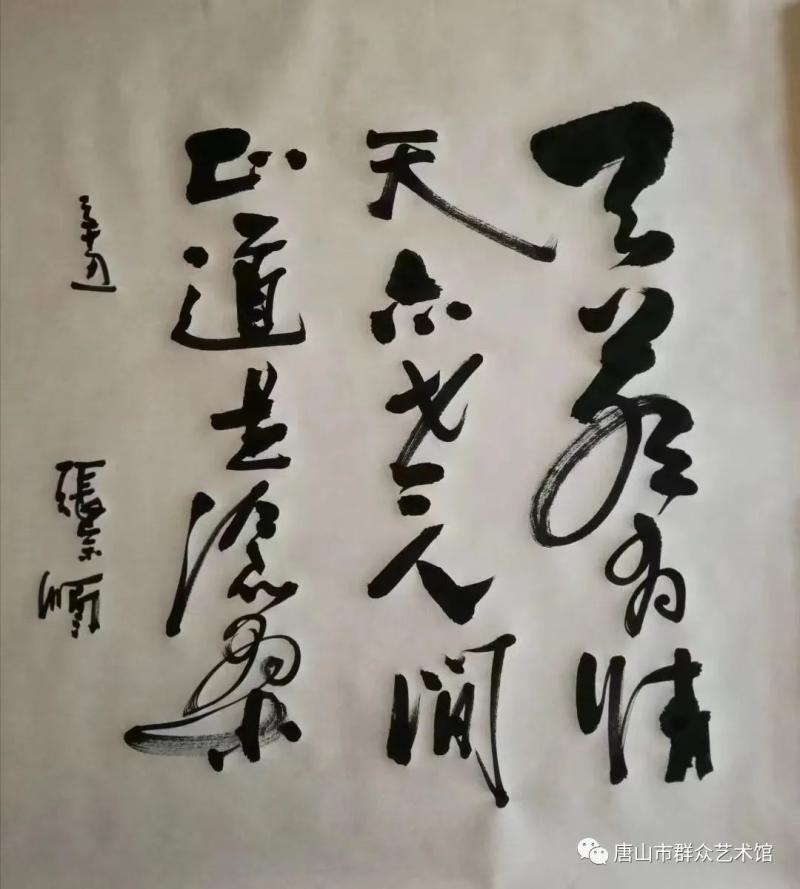 天若有情
天亦老人間
正道是滄桑
辛丑
張
唐山市群众艺术馆